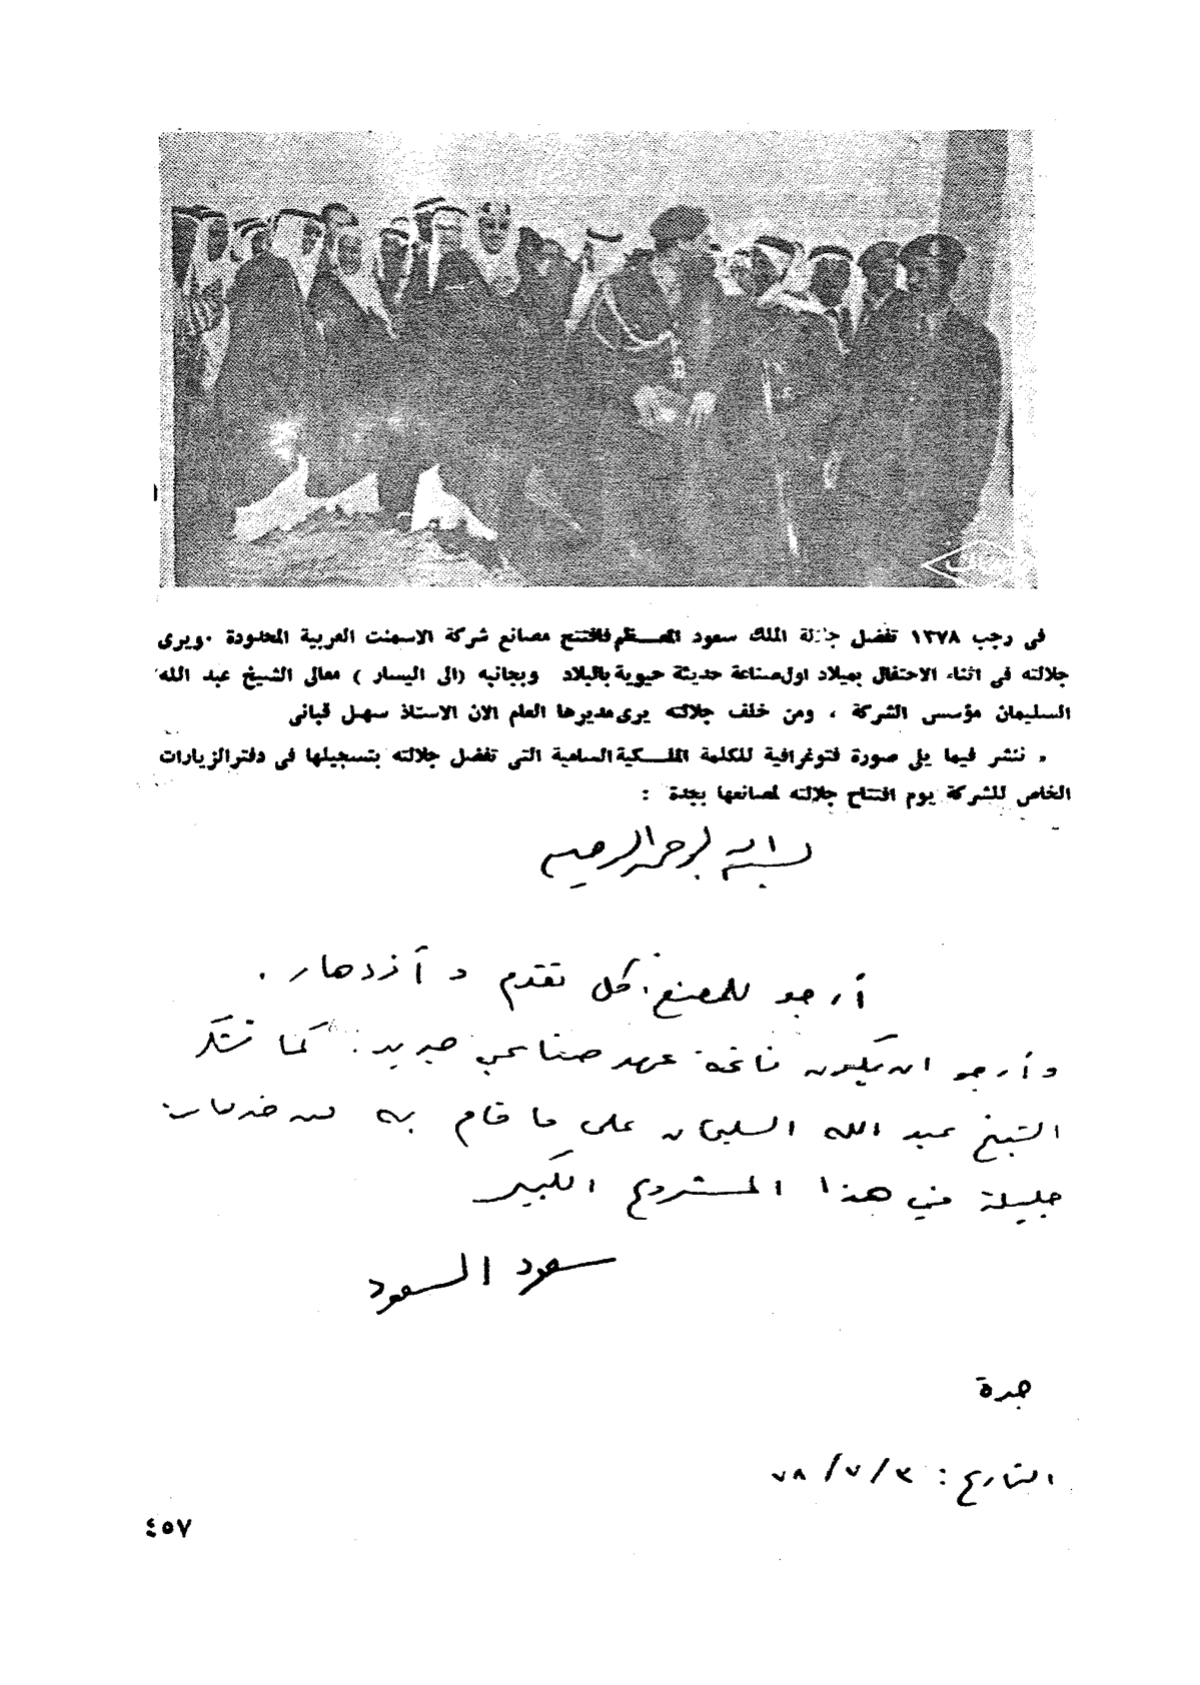 فى رجب ١٣٧٨ تفضل جلالة الملك سعود المعظم فافتتح مصانع شركة الاسمنت العربية المحدودة . ويرى
جلالته فى اثناء الاحتفال بميلاد اول صناعة حديثة حيوية بالبلاد وبجانبه (الى اليسار) معالى الشيخ عبد الله
السليمان مؤسس الشركة ، ومن خلف جلالته يرى مديرها العام الان الاستاذ سهل قبانى
. ننشر فيما يلى صورة فتوغرافية للكلمة الملكية السامية التى تفضل جلالته بتسجيلها فى دفتر الزيارات
الخاص للشركة يوم افتتاح جلالته لمصانعها بجدة :
بسم الله الرحمن الرحيم
أرجو للمصنع كل تقدم و أزدهار .
وأرجو ان يكون فاتحة عهد صناعي جديد . كما نشكر
الشيخ عبد الله السليمان على ما قام به من خدمات
جليلة في هذا المشروع الكبير
سعود السعود
جدة
التاريخ : ٣/٧/٧٨
٤٥٧